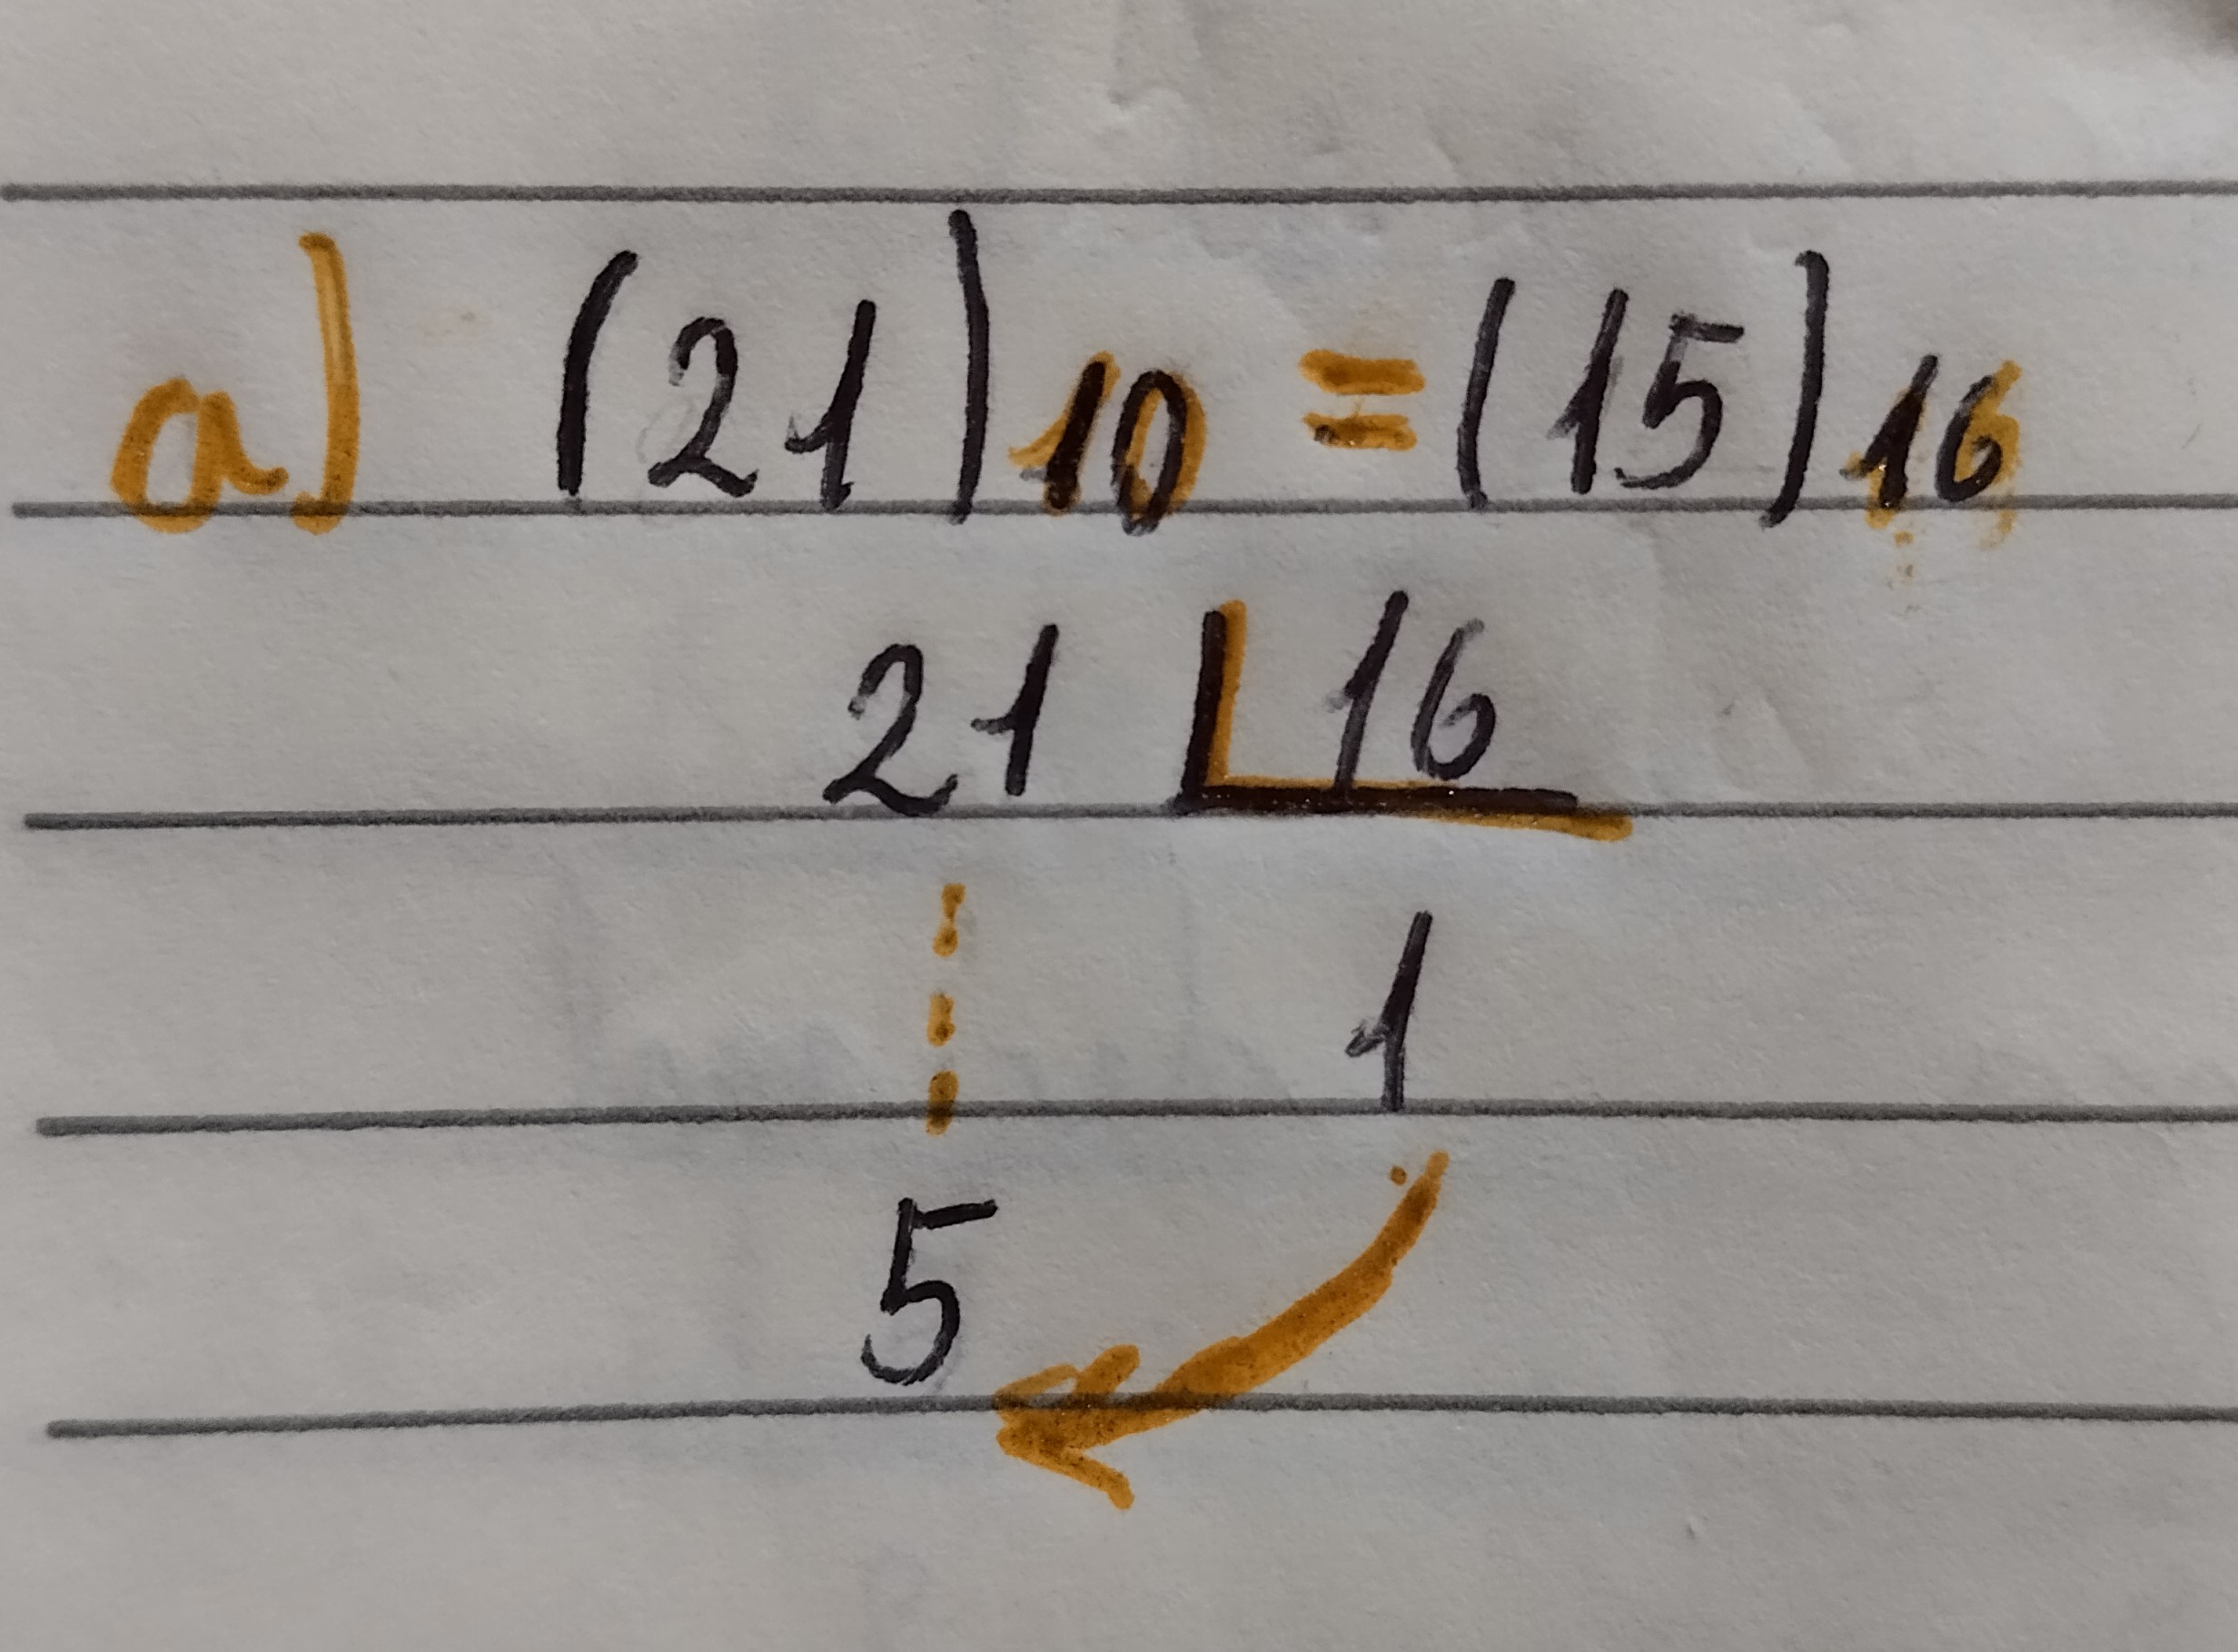 a) (21)10 = (15)16
21 16
1
5